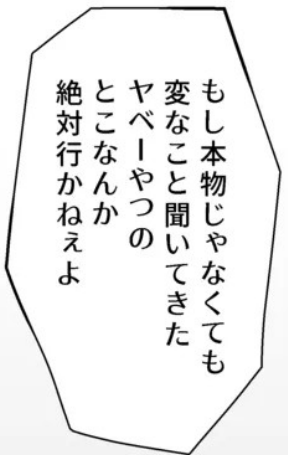 もし本物じゃなくても
変なこと聞いてきた
ヤベーやつの
とこなんか
絶対行かねぇよ